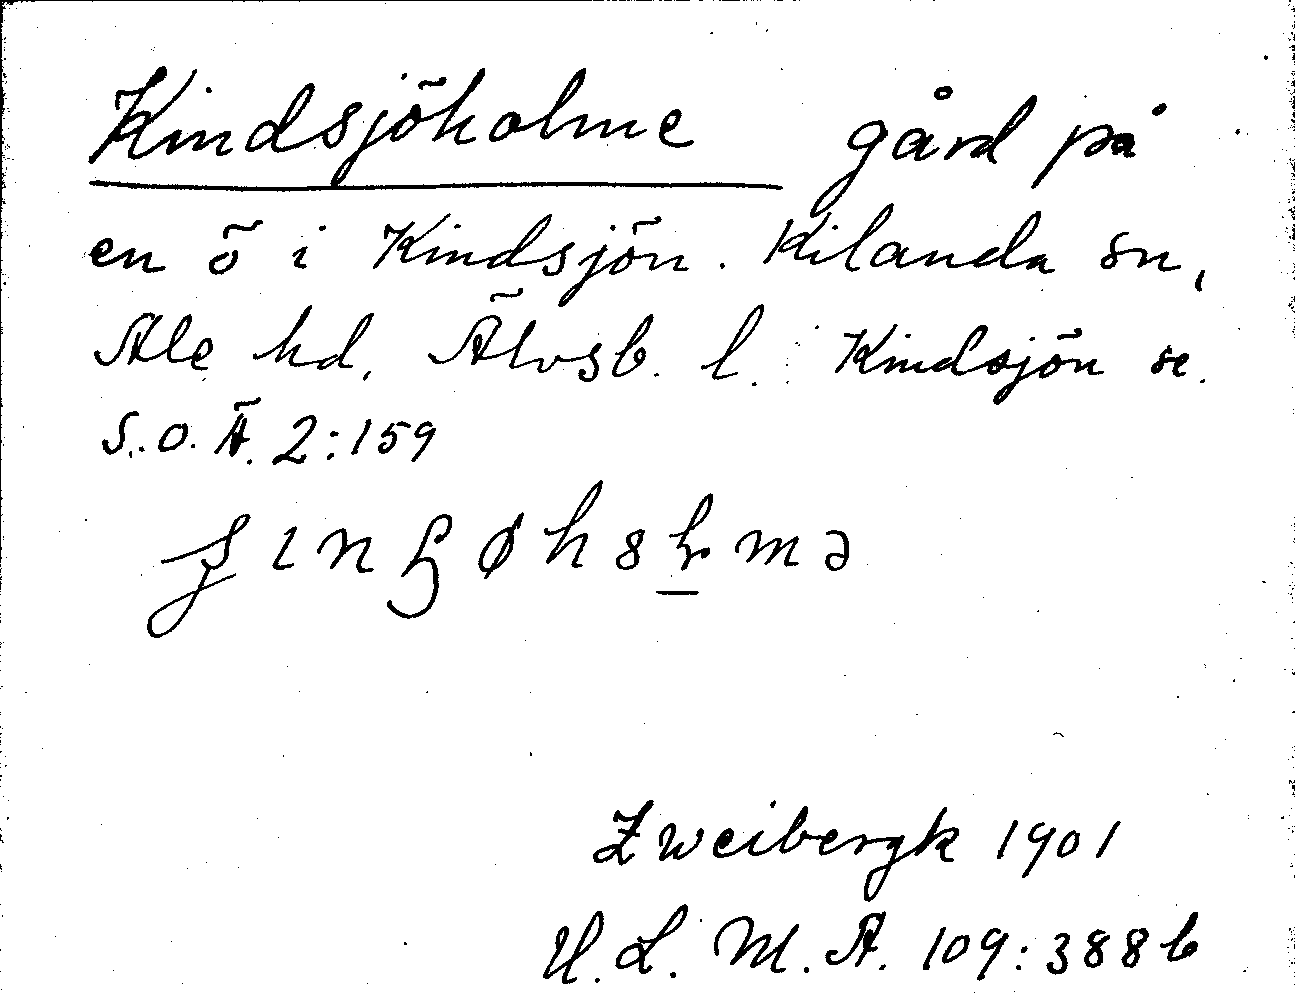 Kindsjöholme gård på
en ö i Kindsjön. Kilanda sn,
Ale hd, Älvsb. l. Kindsjön se
S.O.Ä. 2:159
Zweibergk 1901
U.L.M.A. 109:388b